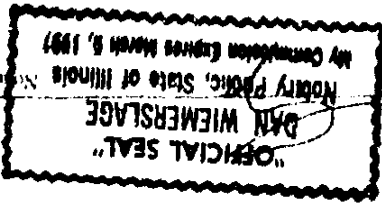 "OFFICIAL SEAL"
DAN WIEMERSLAGE
Notary Public, State of Illinois
My Commission Expires March 5, 1997